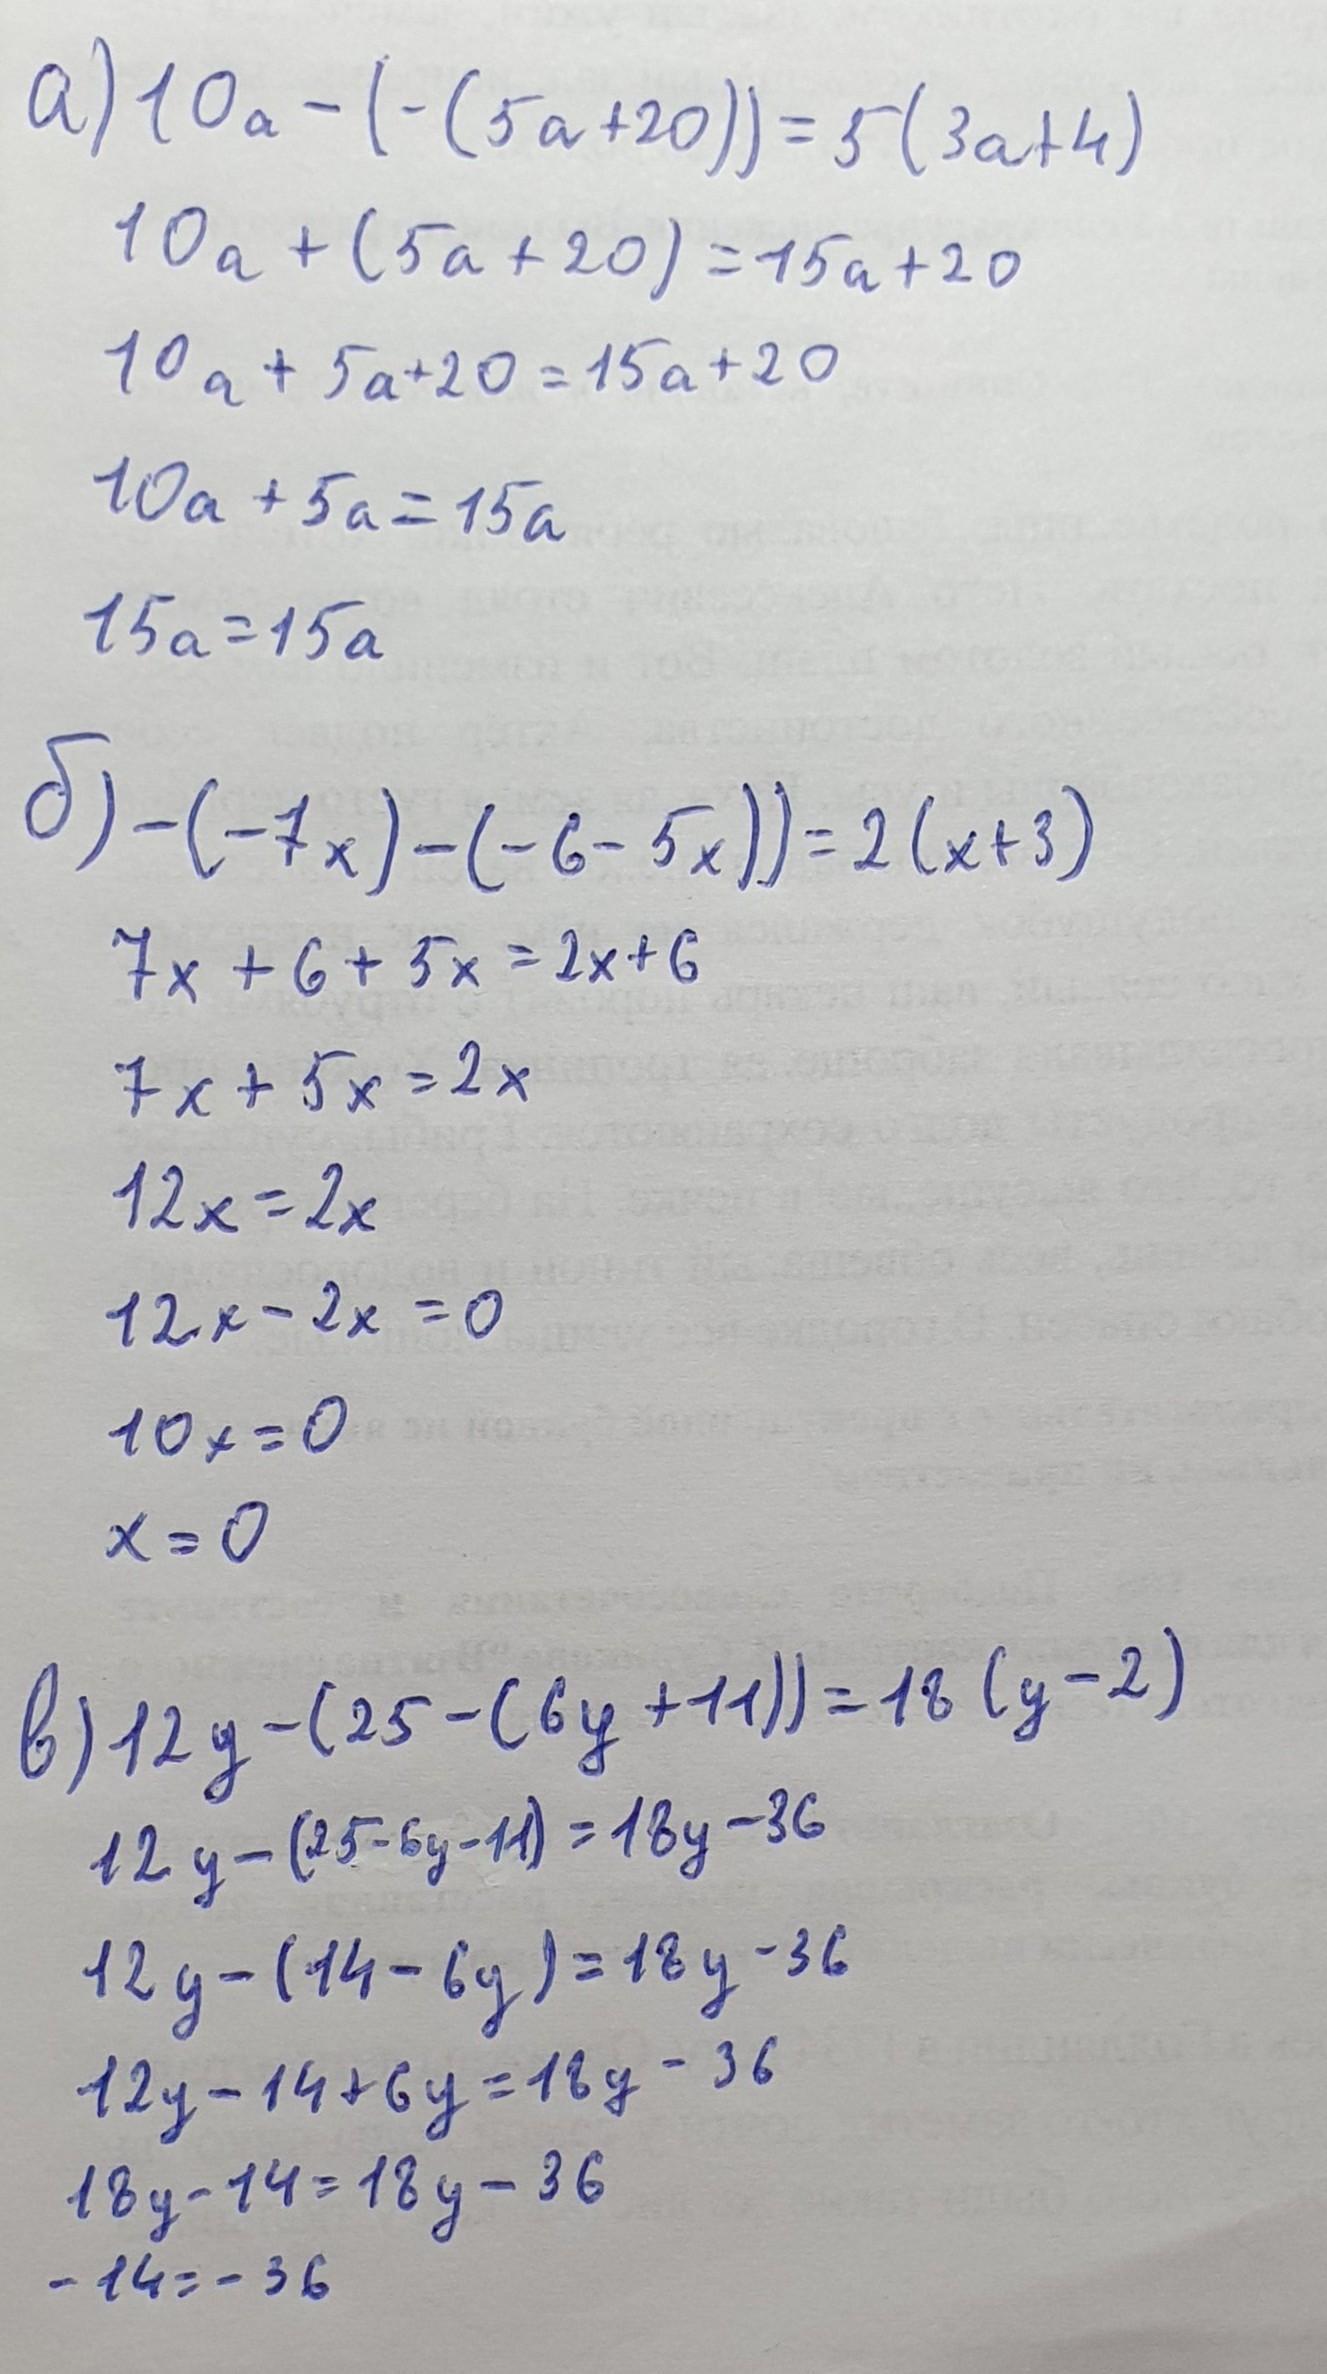 а) 10a - (-(5a+20)) = 5(3a+4)
10a + (5a + 20) = 15a + 20
10a + 5a + 20 = 15a + 20
10a + 5a = 15a
15a = 15a
б) -(-7x) - (-6 - 5x)) = 2(x+3)
7x + 6 + 5x = 2x + 6
7x + 5x = 2x
12x = 2x
12x - 2x = 0
10x = 0
x = 0
в) 12y - (25 - (6y + 11)) = 18(y - 2)
12y - (25 - 6y - 11) = 18y - 36
12y - (14 - 6y) = 18y - 36
12y - 14 + 6y = 18y - 36
18y - 14 = 18y - 36
-14 = -36